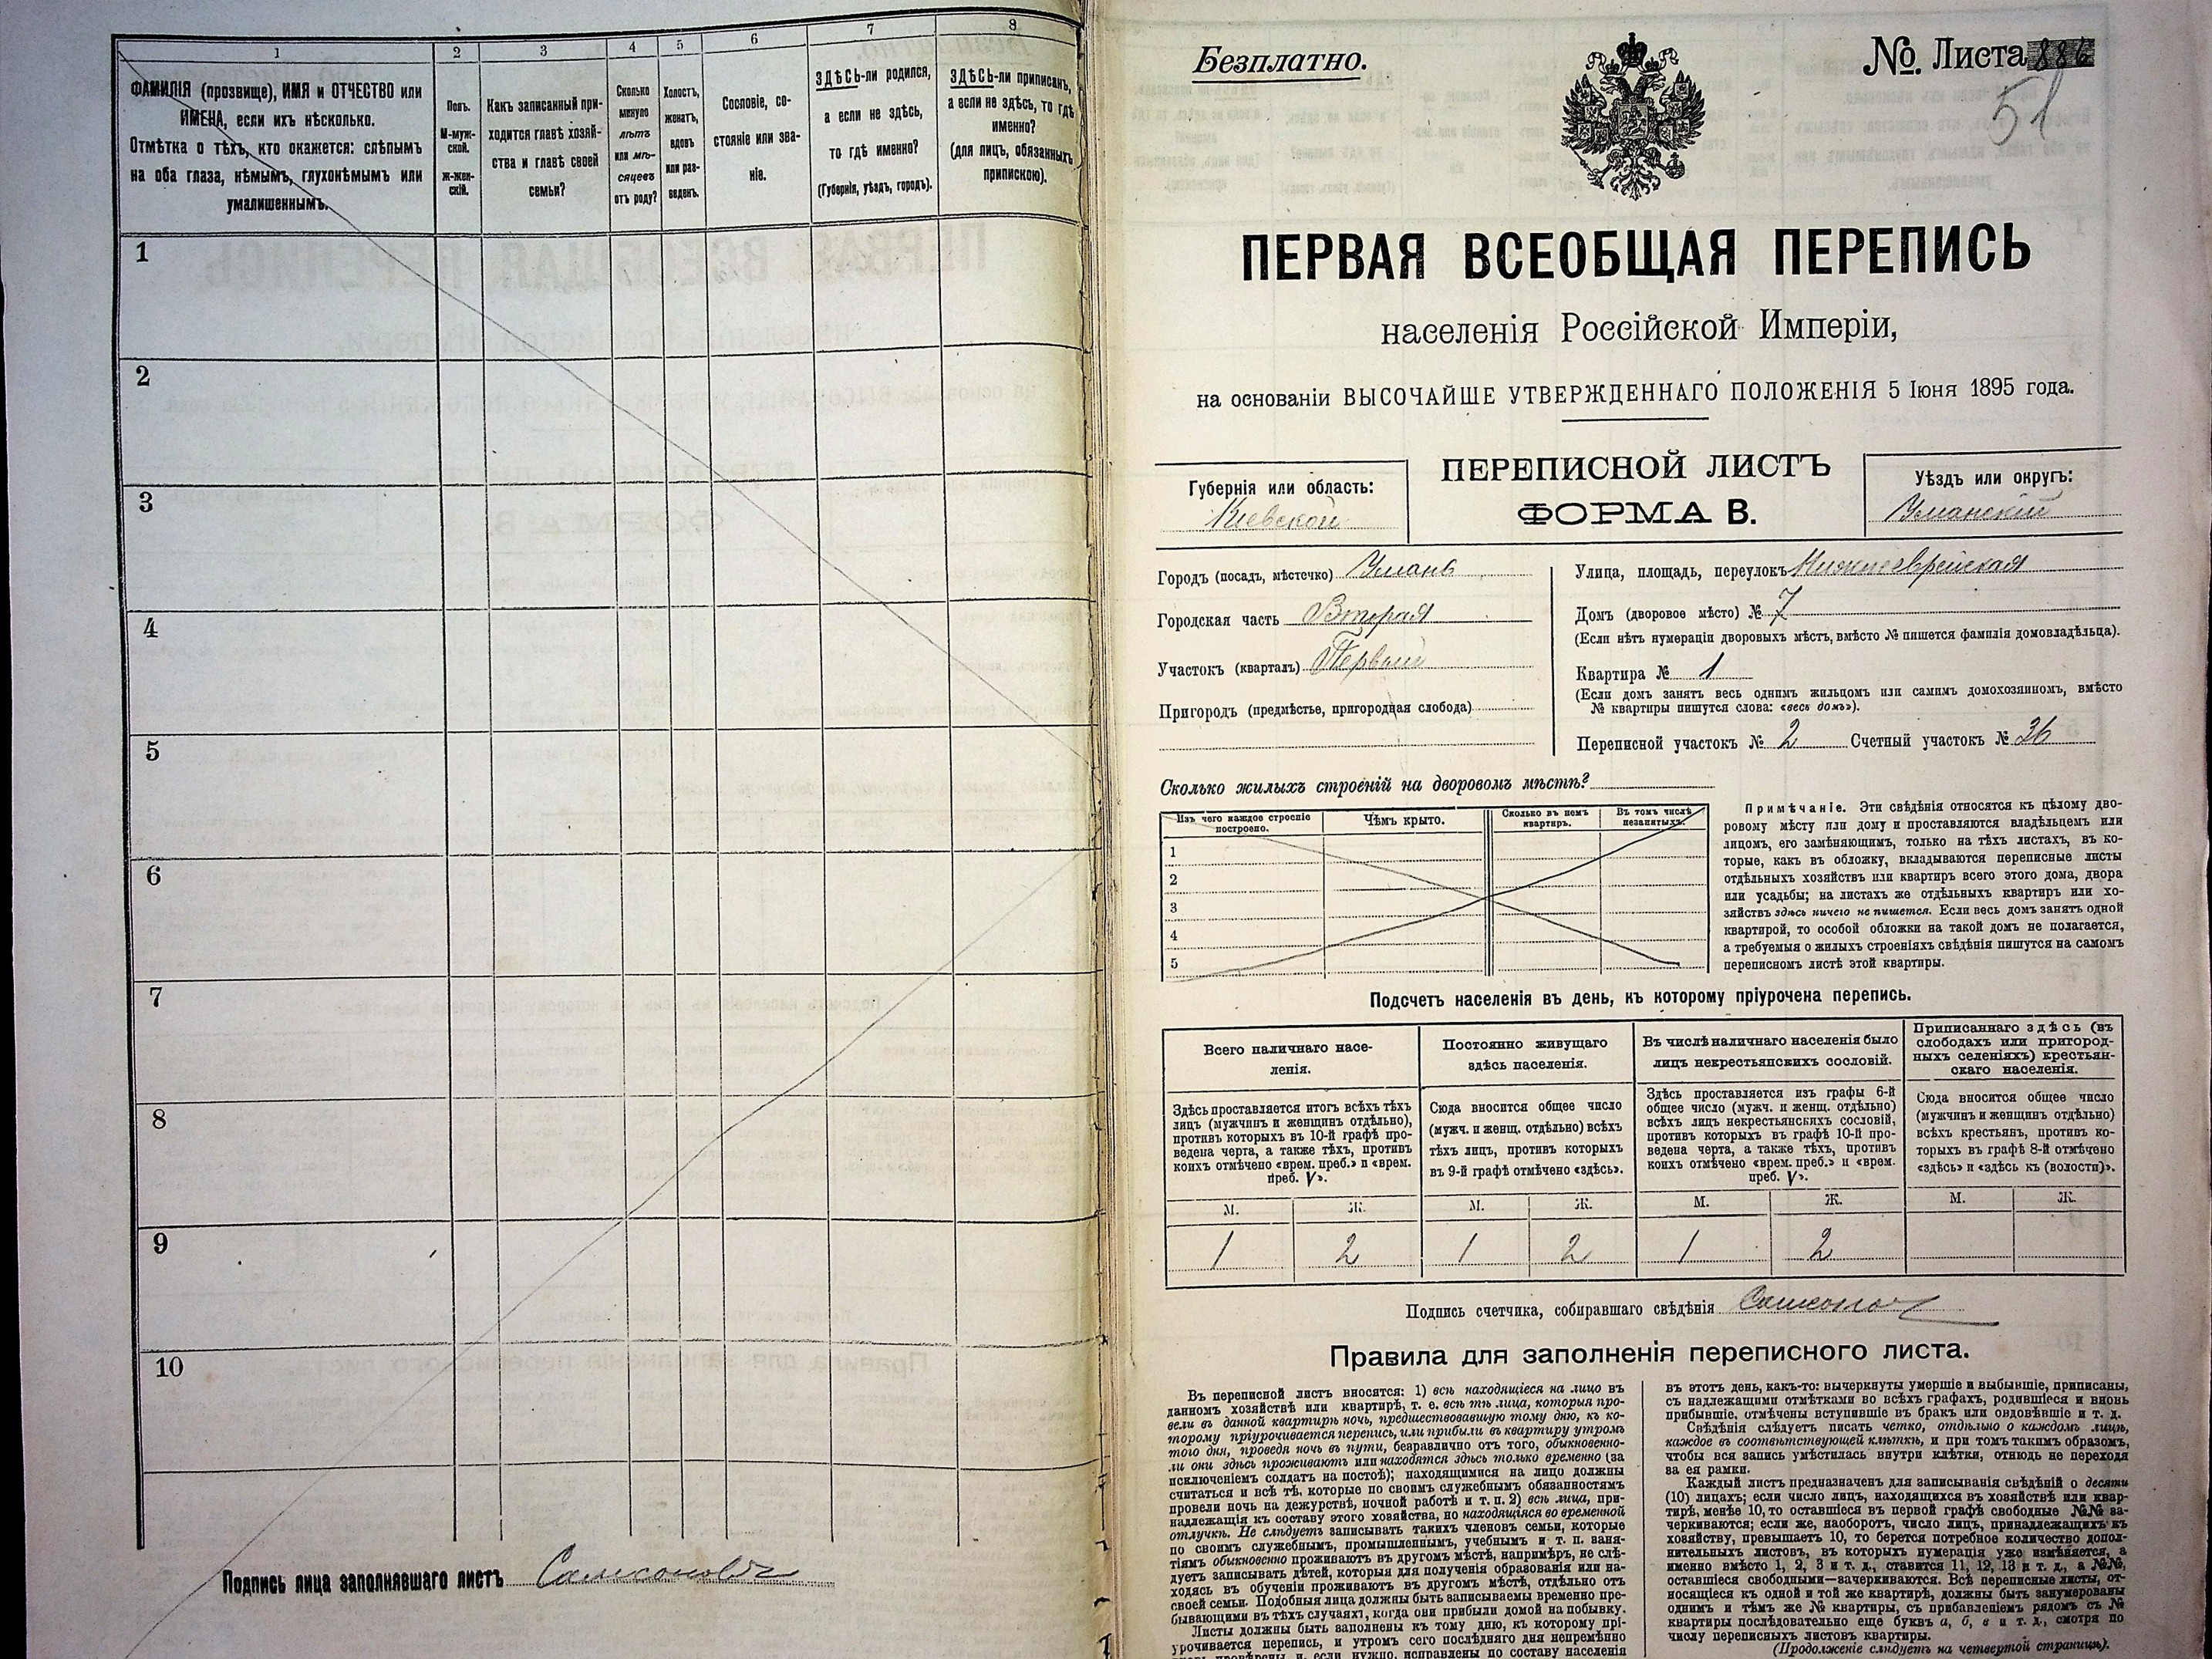 1 2 3 4 5 6 7 8
ФАМИЛІЯ (прозвище), ИМЯ и ОТЧЕСТВО или
ИМЕНА, если ихъ нѣсколько.
Отмѣтка о тѣхъ, кто окажется: слѣпымъ
на оба глаза, нѣмымъ, глухонѣмымъ или
умалишеннымъ.
Полъ.
М-муж-
ской.
Ж-жен-
скій.
Какъ записанный при-
ходится главѣ хозяй-
ства и главѣ своей
семьи?
Сколько
минуло
лѣтъ
или мѣ-
сяцевъ
отъ роду?
Холостъ,
женатъ,
вдовъ
или раз-
веденъ.
Сословіе, со-
стояніе или зва-
ніе.
ЗДѢСЬ-ли родился,
а если не здѣсь,
то гдѣ именно?
(Губернія, уѣздъ, городъ).
ЗДѢСЬ-ли приписанъ,
а если не здѣсь, то гдѣ
именно?
(для лицъ, обязанныхъ
припискою).
1
2
3
4
5
6
7
8
9
10
Подпись лица заполнявшаго листъ
Безплатно.
№ Листа 886
51
ПЕРВАЯ ВСЕОБЩАЯ ПЕРЕПИСЬ
населенія Россійской Имперіи,
на основаніи ВЫСОЧАЙШЕ УТВЕРЖДЕННАГО ПОЛОЖЕНІЯ 5 Іюня 1895 года.
Губернія или область:
Кіевской
ПЕРЕПИСНОЙ ЛИСТЪ
ФОРМА В.
Уѣздъ или округъ:
Уманскій
Городъ (посадъ, мѣстечко) Умань
Городская часть Вторая
Участокъ (кварталъ) Первый
Пригородъ (предмѣстье, пригородная слобода)
Улица, площадь, переулокъ Нижнееврейская
Домъ (дворовое мѣсто) № 7
(Если нѣтъ нумераціи дворовыхъ мѣстъ, вмѣсто № пишется фамилія домовладѣльца).
Квартира № 1
(Если домъ занятъ весь однимъ жильцомъ или самимъ домохозяиномъ, вмѣсто
№ квартиры пишутся слова: «весь домъ»).
Переписной участокъ № 2 Счетный участокъ № 36
Сколько жилыхъ строеній на дворовомъ мѣстѣ?
Изъ чего каждое строеніе
построено.
Чѣмъ крыто.
Сколько въ немъ
квартиръ.
Въ томъ числѣ
незанятыхъ.
1
2
3
4
5
Примѣчаніе. Эти свѣдѣнія относятся къ цѣлому дво-
ровому мѣсту или дому и проставляются владѣльцемъ или
лицомъ, его замѣняющимъ, только на тѣхъ листахъ, въ ко-
торые, какъ въ обложку, вкладываются переписные листы
отдѣльныхъ хозяйствъ или квартиръ всего этого дома, двора
или усадьбы; на листахъ же отдѣльныхъ квартиръ или хо-
зяйствъ здѣсь ничего не пишется. Если весь домъ занятъ одной
квартирой, то особой обложки на такой домъ не полагается,
а требуемыя о жилыхъ строеніяхъ свѣдѣнія пишутся на самомъ
переписномъ листѣ этой квартиры.
Подсчетъ населенія въ день, къ которому пріурочена перепись.
Всего наличнаго насе-
ленія.
Здѣсь проставляется итогъ всѣхъ тѣхъ
лицъ (мужчинъ и женщинъ отдѣльно),
противъ которыхъ въ 10-й графѣ про-
ведена черта, а также тѣхъ, противъ
коихъ отмѣчено «врем. преб.» и «врем.
преб. V».
Постоянно живущаго
здѣсь населенія.
Сюда вносится общее число
(мужч. и женщ. отдѣльно) всѣхъ
тѣхъ лицъ, противъ которыхъ
въ 9-й графѣ отмѣчено «здѣсь».
Въ числѣ наличнаго населенія было
лицъ некрестьянскихъ сословій.
Здѣсь проставляется изъ графы 6-й
общее число (мужч. и женщ. отдѣльно)
всѣхъ лицъ некрестьянскихъ сословій,
противъ которыхъ въ графѣ 10-й про-
ведена черта, а также тѣхъ, противъ
коихъ отмѣчено «врем. преб.» и «врем.
преб. V».
Приписаннаго здѣсь (въ
слободахъ или пригород-
ныхъ селеніяхъ) крестьян-
скаго населенія.
Сюда вносится общее число
(мужчинъ и женщинъ отдѣльно)
всѣхъ крестьянъ, противъ ко-
торыхъ въ графѣ 8-й отмѣчено
«здѣсь» и «здѣсь къ (волости)».
М. Ж. М. Ж. М. Ж. М. Ж.
1 2 1 2 1 2
Подпись счетчика, собиравшаго свѣдѣнія
Правила для заполненія переписного листа.
Въ переписной листъ вносятся: 1) всѣ находящіеся на лицо въ
данномъ хозяйствѣ или квартирѣ, т. е. всѣ тѣ лица, которыя про-
вели въ данной квартирѣ ночь, предшествовавшую тому дню, къ ко-
торому пріурочивается перепись, или прибыли въ квартиру утромъ
того дня, проведя ночь въ пути, безразлично отъ того, обыкновенно-
ли они здѣсь проживаютъ или находятся здѣсь только временно (за
исключеніемъ солдатъ на постоѣ); находящимися на лицо должны
считаться и всѣ тѣ, которые по своимъ служебнымъ обязанностямъ
провели ночь на дежурствѣ, ночной работѣ и т. п. 2) всѣ лица, при-
надлежащія къ составу этого хозяйства, но находящіяся во временной
отлучкѣ. Не слѣдуетъ записывать такихъ членовъ семьи, которые
по своимъ служебнымъ, промышленнымъ, учебнымъ и т. п. заня-
тіямъ обыкновенно проживаютъ въ другомъ мѣстѣ, напримѣръ, не слѣ-
дуетъ записывать дѣтей, которыя для полученія образованія или на-
ходясь въ обученіи проживаютъ въ другомъ мѣстѣ, отдѣльно отъ
своей семьи. Подобныя лица должны быть записываемы временно пре-
бывающими въ тѣхъ случаяхъ, когда они прибыли домой на побывку.
Листы должны быть заполнены къ тому дню, къ которому прі-
урочивается перепись, и утромъ сего послѣдняго дня непремѣнно
вновь провѣрены и, если нужно, исправлены по составу населенія
въ этотъ день, какъ-то: вычеркнуты умершіе и выбывшіе, приписаны,
съ надлежащими отмѣтками во всѣхъ графахъ, родившіеся и вновь
прибывшіе, отмѣчены вступившіе въ бракъ или овдовѣвшіе и т. д.
Свѣдѣнія слѣдуетъ писать четко, отдѣльно о каждомъ лицѣ,
каждое въ соотвѣтствующей клѣткѣ, и при томъ такимъ образомъ,
чтобы вся запись умѣстилась внутри клѣтки, отнюдь не переходя
за ея рамки.
Каждый листъ предназначенъ для записыванія свѣдѣній о десяти
(10) лицахъ; если число лицъ, находящихся въ хозяйствѣ или квар-
тирѣ, менѣе 10, то оставшіеся въ первой графѣ свободные №№ за-
черкиваются; если же, наоборотъ, число лицъ, принадлежащихъ къ
хозяйству, превышаетъ 10, то берется потребное количество допол-
нительныхъ листовъ, въ которыхъ нумерація уже измѣняется, а
именно вмѣсто 1, 2, 3 и т. д., ставится 11, 12, 13 и т. д., а №№,
оставшіеся свободными—зачеркиваются. Всѣ переписные листы, от-
носящіеся къ одной и той же квартирѣ, должны быть занумерованы
однимъ и тѣмъ же № квартиры, съ прибавленіемъ рядомъ съ №
квартиры послѣдовательно еще буквъ а, б, в и т. д., смотря по
числу переписныхъ листовъ квартиры.
(Продолженіе слѣдуетъ на четвертой страницѣ).